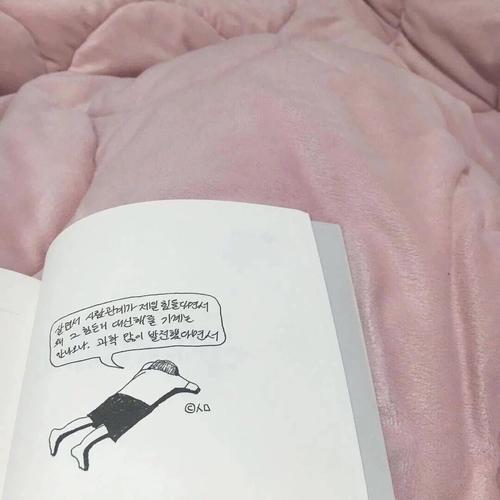 살면서 사람관계가 제일 힘들다면서
왜 그 힘든거 대신해줄 기계는
안나오냐. 과학 많이 발전했다면서
©시ㅁ